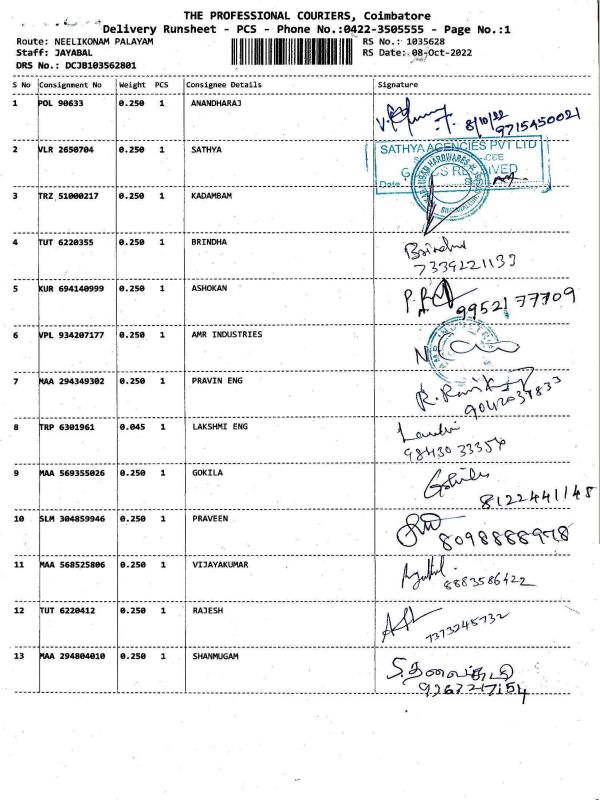 THE PROFESSIONAL COURIERS, Coimbatore
Delivery Runsheet - PCS - Phone No.:0422-3505555 - Page No.:1
Route: NEELIKONAM PALAYAM RS No.: 1035628
Staff: JAYABAL RS Date: 08-Oct-2022
DRS No.: DCJB103562801
S No Consignment No Weight PCS Consignee Details Signature
1 POL 90633 0.250 1 ANANDHARAJ 8/10/22 9715450021
2 VLR 2650704 0.250 1 SATHYA
SATHYA AGENCIES PVT LTD
Date
3 TRZ 51000217 0.250 1 KADAMBAM
4 TUT 6220355 0.250 1 BRINDHA Brindha
7339221133
5 KUR 694140999 0.250 1 ASHOKAN 9952177709
6 VPL 934207177 0.250 1 AMR INDUSTRIES
7 MAA 294349302 0.250 1 PRAVIN ENG
9042037833
8 TRP 6301961 0.045 1 LAKSHMI ENG
98430 33356
9 MAA 569355026 0.250 1 GOKILA Gokila
8122441148
10 SLM 304859946 0.250 1 PRAVEEN
8098888978
11 MAA 568525806 0.250 1 VIJAYAKUMAR
8883586422
12 TUT 6220412 0.250 1 RAJESH
7373245732
13 MAA 294804010 0.250 1 SHANMUGAM
9267217154